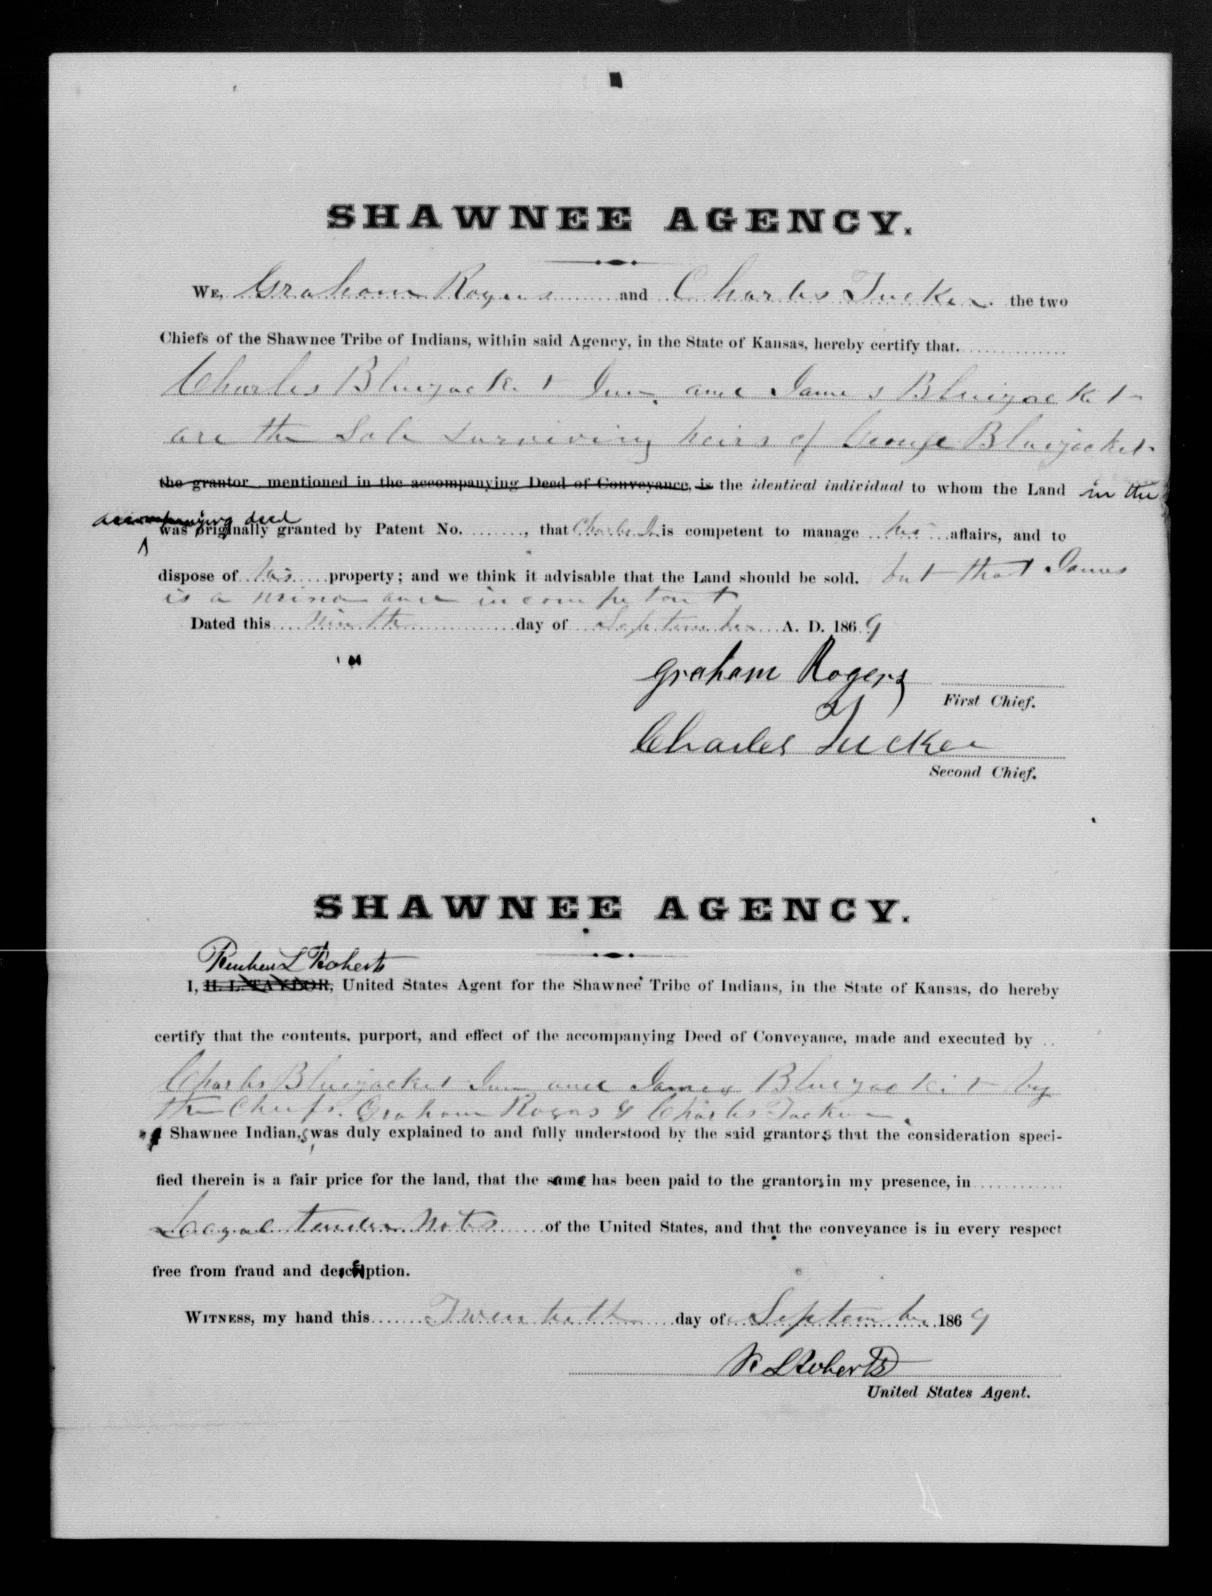 SHAWNEE AGENCY.
WE, Graham Rogers and Charles Tucker the two
Chiefs of the Shawnee Tribe of Indians, within said Agency, in the State of Kansas, hereby certify that
Charles Bluejacket Jun. and James Bluejacket
are the Sole surviving heirs of George Bluejacket
the grantor mentioned in the accompanying Deed of Conveyance, is the identical individual to whom the Land in the
accompanying deed
was originally granted by Patent No. ........, that Charles Jr is competent to manage his affairs, and to
dispose of his property; and we think it advisable that the Land should be sold. but that James
is a minor and incompetent
Dated this Ninth day of September A. D. 1869
Graham Rogers
First Chief.
Charles Tucker
Second Chief.
SHAWNEE AGENCY.
Reuben L Roberts
I, H. L. TAYLOR, United States Agent for the Shawnee Tribe of Indians, in the State of Kansas, do hereby
certify that the contents, purport, and effect of the accompanying Deed of Conveyance, made and executed by
Charles Bluejacket Jun and James Bluejacket by
the Chiefs. Graham Rogers & Charles Tucker
Shawnee Indians, was duly explained to and fully understood by the said grantors that the consideration speci-
fied therein is a fair price for the land, that the same has been paid to the grantors in my presence, in
Leagal tender Notes of the United States, and that the conveyance is in every respect
free from fraud and deception.
WITNESS, my hand this Twentieth day of September 1869
R L Roberts
United States Agent.